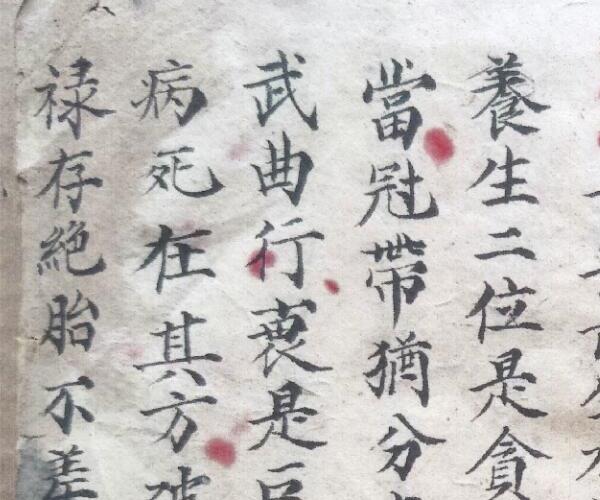 養生二位是貪
當冠帶猶分
武曲行衰是巨
病死在其方破
禄存絕胎不差